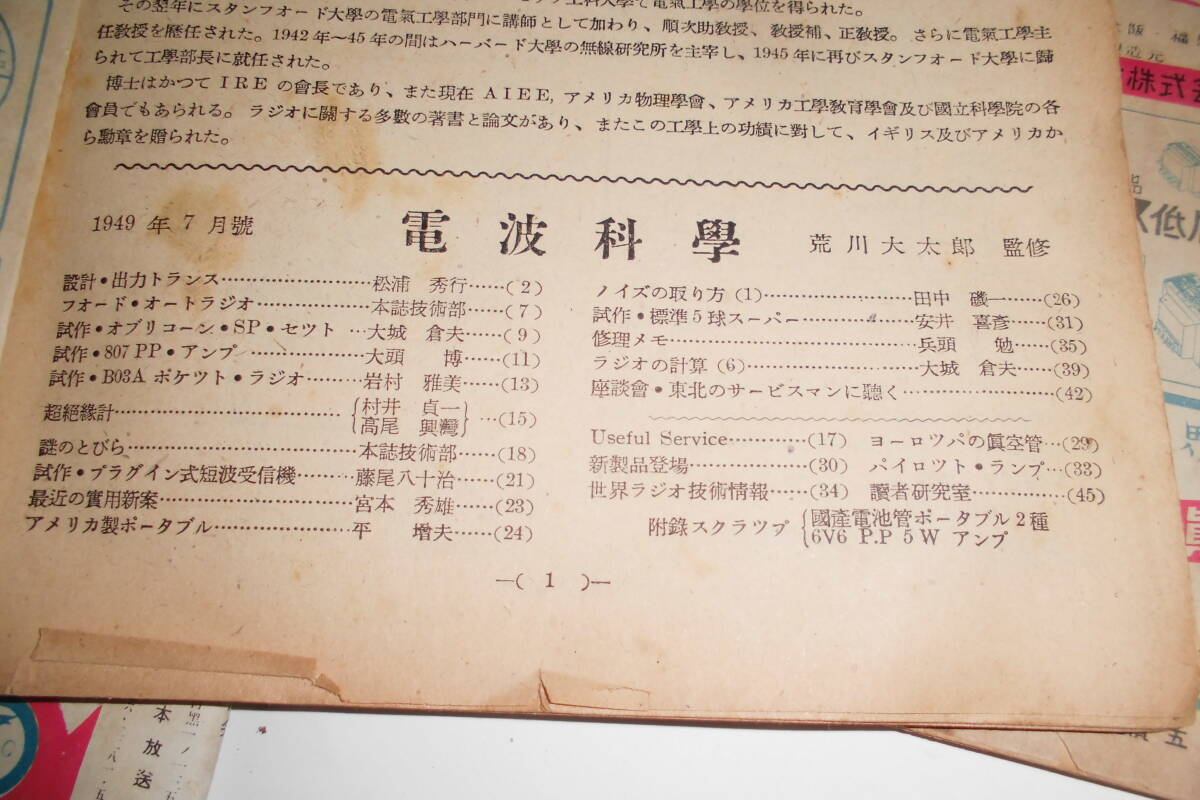 その翌年にスタンフオード大學の電氣工學部門に講師として加わり、順次助教授、教授補、正教授。さらに電氣工學主
任教授を歴任された。1942年〜45年の間はハーバード大學の無線研究所を主宰し、1945年に再びスタンフオード大學に歸
られて工學部長に就任された。
博士はかつて IRE の會長であり、また現在 AIEE, アメリカ物理學會、アメリカ工學教育學會及び國立科學院の各
會員でもあられる。ラジオに關する多數の著書と論文があり、またこの工學上の功績に對して、イギリス及びアメリカか
ら勳章を贈られた。
1949年7月號 電波科學 荒川大太郎 監修
設計・出力トランス……………………松浦 秀行……(2)
フオード・オートラジオ………………本誌技術部……(7)
試作・オブリコーン・SP・セツト…大城 倉夫……(9)
試作・807 PP・アンプ………………大頭 博……(11)
試作・B03A ポケツト・ラジオ………岩村 雅美……(13)
超絕緣計……………………{村井 貞一 高尾 興灣}…(15)
謎のとびら……………………………本誌技術部……(18)
試作・プラグイン式短波受信機………藤尾八十治……(21)
最近の實用新案………………………宮本 秀雄……(23)
アメリカ製ポータブル………………平 增夫……(24)
ノイズの取り方 (1)……………………田中 磯一……(26)
試作・標準5球スーパー………………安井 喜彥……(31)
修理メモ………………………………兵頭 勉……(35)
ラジオの計算 (6)………………………大城 倉夫……(39)
座談會・東北のサービスマンに聽く……………………(42)
Useful Service…………(17) ヨーロツパの眞空管…(29)
新製品登場………………(30) パイロツト・ランプ…(33)
世界ラジオ技術情報……(34) 讀者研究室……………(45)
附錄スクラツプ{國產電池管ポータブル2種
6V6 P.P 5W アンプ
—( 1 )—
株式
低
本放送